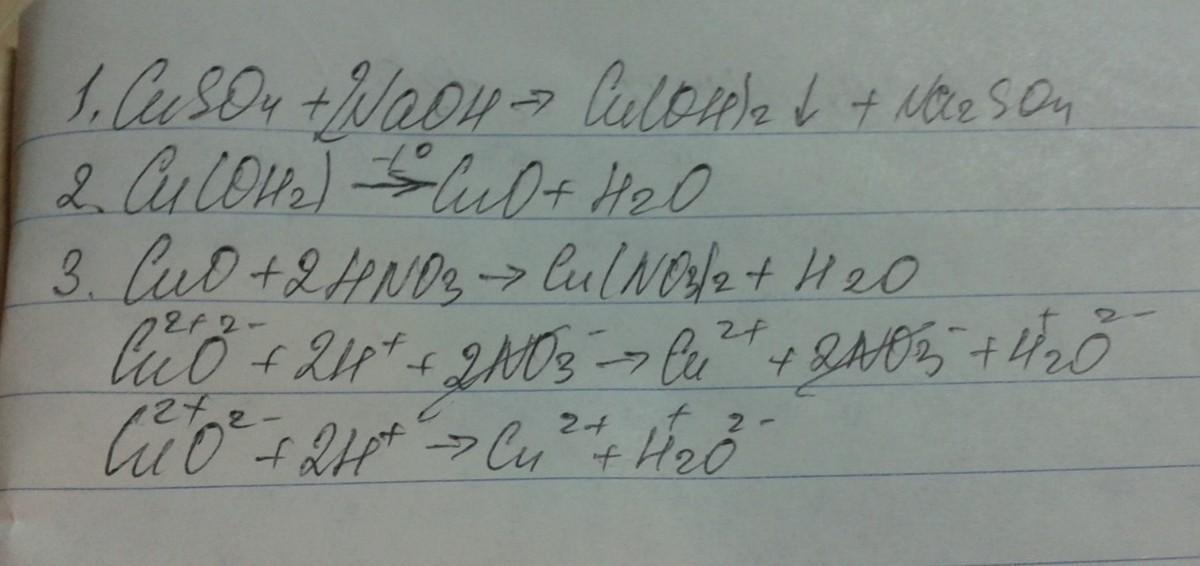 1. CuSO₄ + 2NaOH → Cu(OH)₂ ↓ + Na₂SO₄
2. Cu(OH₂) —t°→ CuO + H₂O
3. CuO + 2HNO₃ → Cu(NO₃)₂ + H₂O
Cu²⁺O²⁻ + 2H⁺ + 2NO₃⁻ → Cu²⁺ + 2NO₃⁻ + H⁺₂O²⁻
Cu²⁺O²⁻ + 2H⁺ → Cu²⁺ + H⁺₂O²⁻